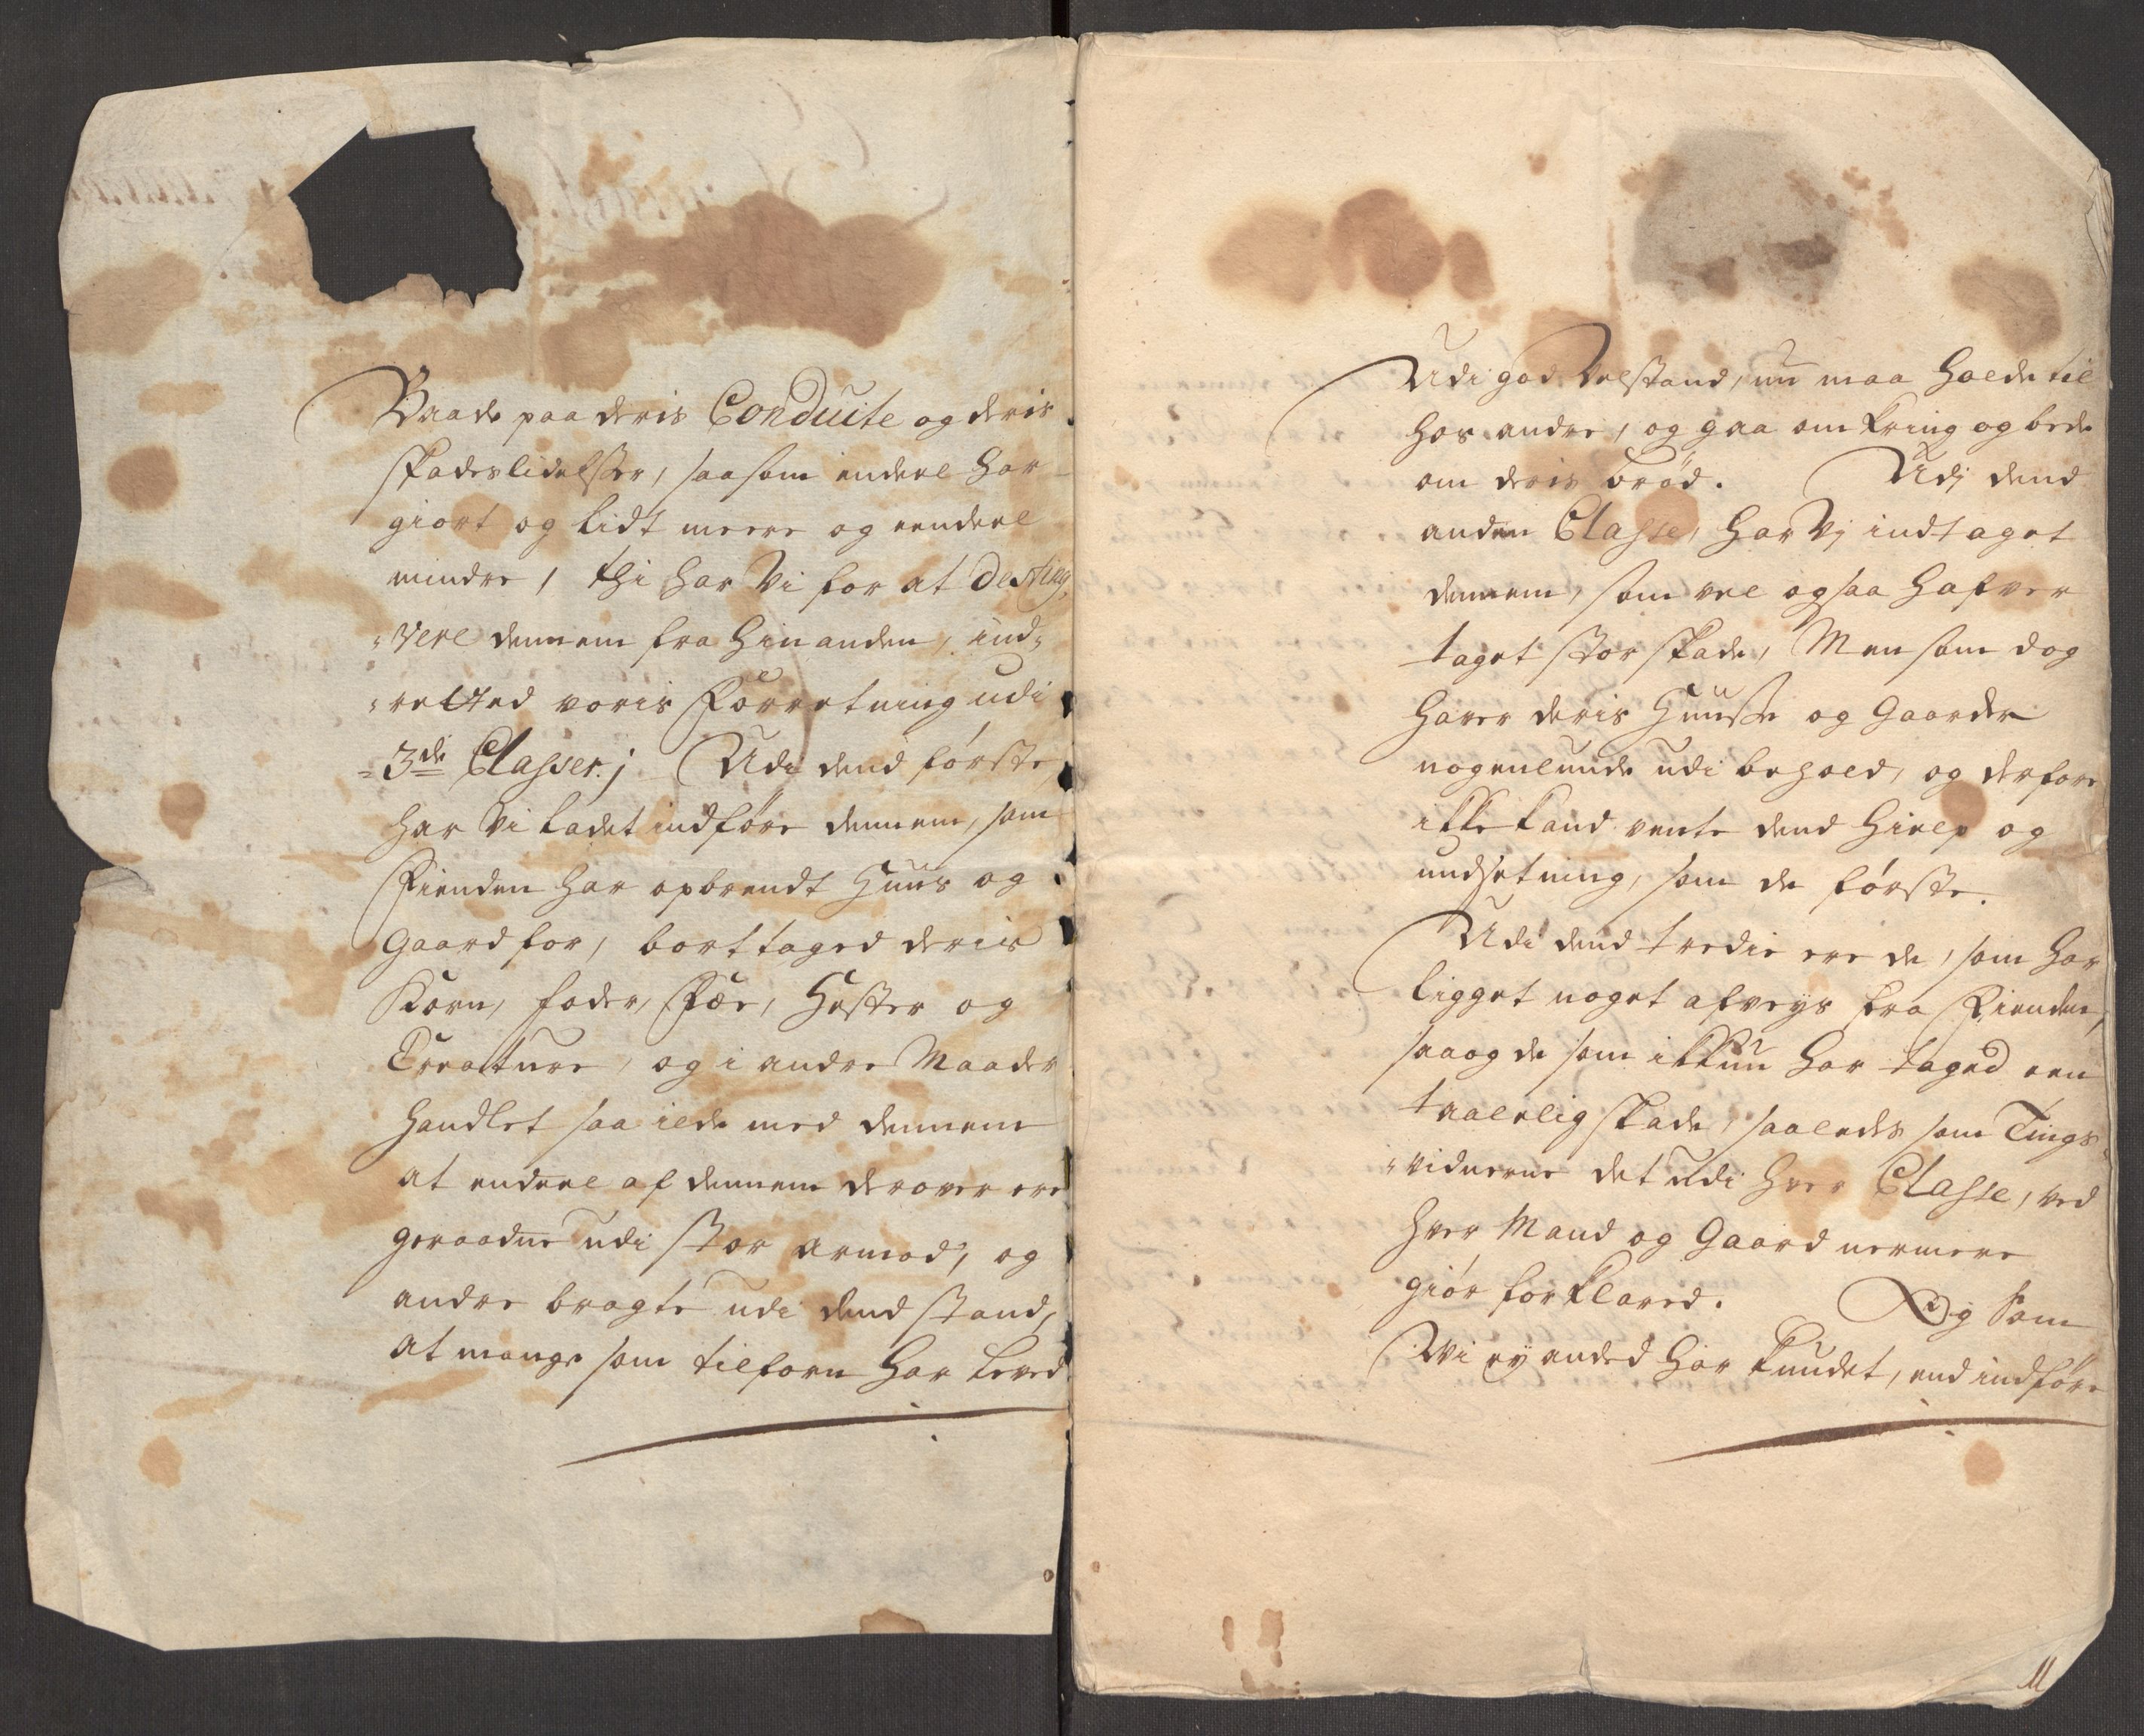 Baade paa deris Conduite og deris
skadeslidelsser, saasom endeel har
giort og lidt meere og eendeel
mindre, thi har Vi for at desting,
=vere dennem fra hinanden, ind=
=retted voris Forretning udi
=3de Classer.; Udi dend første,
har Vi ladet indføre dennem, som
Fienden har opbrendt Huus og
Gaard for, borttaged deris
Korn, foder, Fæe, Hester og
Creature, og i andre Maader
handlet saa ilde med dennem
at endeel af dennem derover ere
geraadne udi stor armod, og
andre bragte udi dend stand,
at mange som tilforn har leved
Udi god Velstand, nu maa holde til
hos andre, og gaa omkring og bede
om deris brød. Udj dend
anden Classe, har Vj indtaget
dennem, som vel ogsaa hafver
taget stor skade, Men som dog
haver deris Huusse og Gaarder
nogenlunde udi behold, og derfore
ikke kand vente dend hielp og
undsetning, som de første.
Udi dend tredie ere de, som har
ligget noget afveys fra Fienden,
saa og de som ikkun har taged een
taalelig skade, saaledes som Tings
=vidnerne det udi hver Classe, ved
hver Mand og Gaard nermere
giør forklared. Og som
Wi ey anded har kundet, end indføre
11